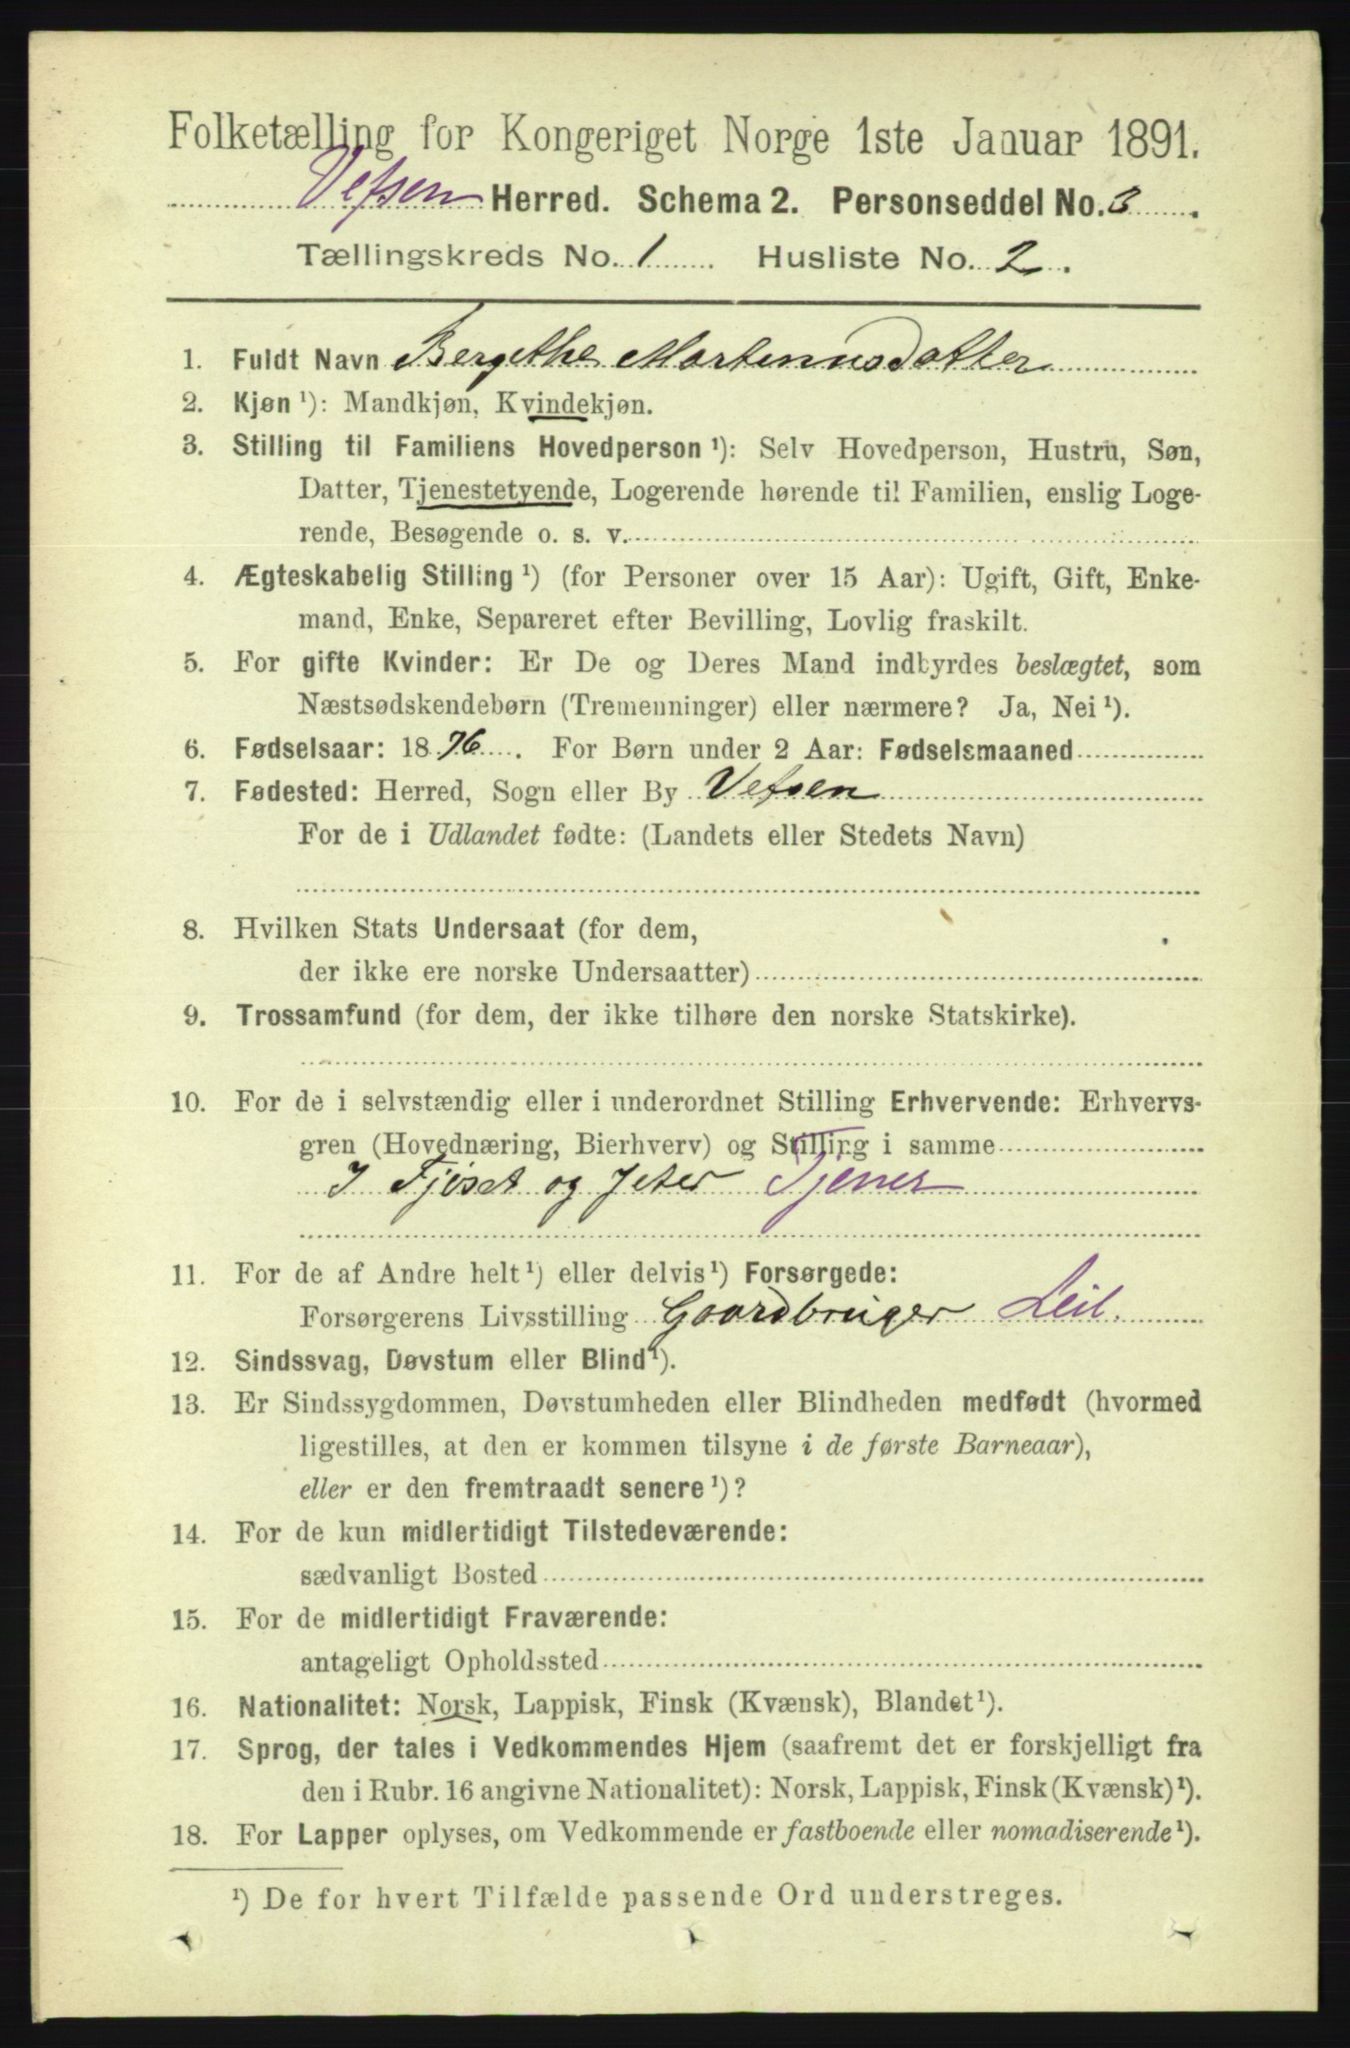 Folketælling for Kongeriget Norge 1ste Januar 1891.
Vefsen Herred. Schema 2. Personseddel No. 3.
Tællingskreds No. 1 Husliste No. 2.
1. Fuldt Navn Bergethe Martinusdatter
2. Kjøn ¹): Mandkjøn, Kvindekjøn.
3. Stilling til Familiens Hovedperson ¹): Selv Hovedperson, Hustru, Søn,
Datter, Tjenestetyende, Logerende hørende til Familien, enslig Loge-
rende, Besøgende o. s. v.
4. Ægteskabelig Stilling ¹) (for Personer over 15 Aar): Ugift, Gift, Enke-
mand, Enke, Separeret efter Bevilling, Lovlig fraskilt.
5. For gifte Kvinder: Er De og Deres Mand indbyrdes beslægtet, som
Næstsødskendebørn (Tremenninger) eller nærmere? Ja, Nei ¹).
6. Fødselsaar: 1876. For Børn under 2 Aar: Fødselsmaaned
7. Fødested: Herred, Sogn eller By Vefsen
For de i Udlandet fødte: (Landets eller Stedets Navn)
8. Hvilken Stats Undersaat (for dem,
der ikke ere norske Undersaatter)
9. Trossamfund (for dem, der ikke tilhøre den norske Statskirke).
10. For de i selvstændig eller i underordnet Stilling Erhvervende: Erhvervs-
gren (Hovednæring, Bierhverv) og Stilling i samme
I Fjøset og Jeter Tjener
11. For de af Andre helt ¹) eller delvis ¹) Forsørgede:
Forsørgerens Livsstilling Gaardbruger Leil.
12. Sindssvag, Døvstum eller Blind ¹).
13. Er Sindssygdommen, Døvstumheden eller Blindheden medfødt (hvormed
ligestilles, at den er kommen tilsyne i de første Barneaar),
eller er den fremtraadt senere ¹)?
14. For de kun midlertidigt Tilstedeværende:
sædvanligt Bosted
15. For de midlertidigt Fraværende:
antageligt Opholdssted
16. Nationalitet: Norsk, Lappisk, Finsk (Kvænsk), Blandet ¹).
17. Sprog, der tales i Vedkommendes Hjem (saafremt det er forskjelligt fra
den i Rubr. 16 angivne Nationalitet): Norsk, Lappisk, Finsk (Kvænsk) ¹).
18. For Lapper oplyses, om Vedkommende er fastboende eller nomadiserende ¹).
¹) De for hvert Tilfælde passende Ord understreges.